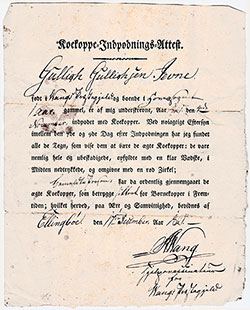 Kockoppe-Indpodnings-Attest.
Gulligh Gullichsen
født i Wangs Præstegjeld og boende i
Aar gammel, er af mig underskrevne, Aar den
November, indpodet med Kockopper. Ved nøiagtigt Eftersyn
imellem den 7de og 9de Dag efter Indpodningen har jeg fundet
alle de Tegn, som vise dem at være de egte Kockopper: de vare
nemlig hele og ubeskadigede, opfyldte med en klar Vædske, i
Midten nedtrykkede, og omgivne med en rød Cirkel;
har da ordentlig gjennemgaaet de
egte Kockopper, som betrygge for Børnekopper i Frem-
tiden; hvilket herved, paa Ære og Samvittighed, bevidnes af
Ellingboe den 17 December Aar
Wang
for
Wangs Præstegjeld